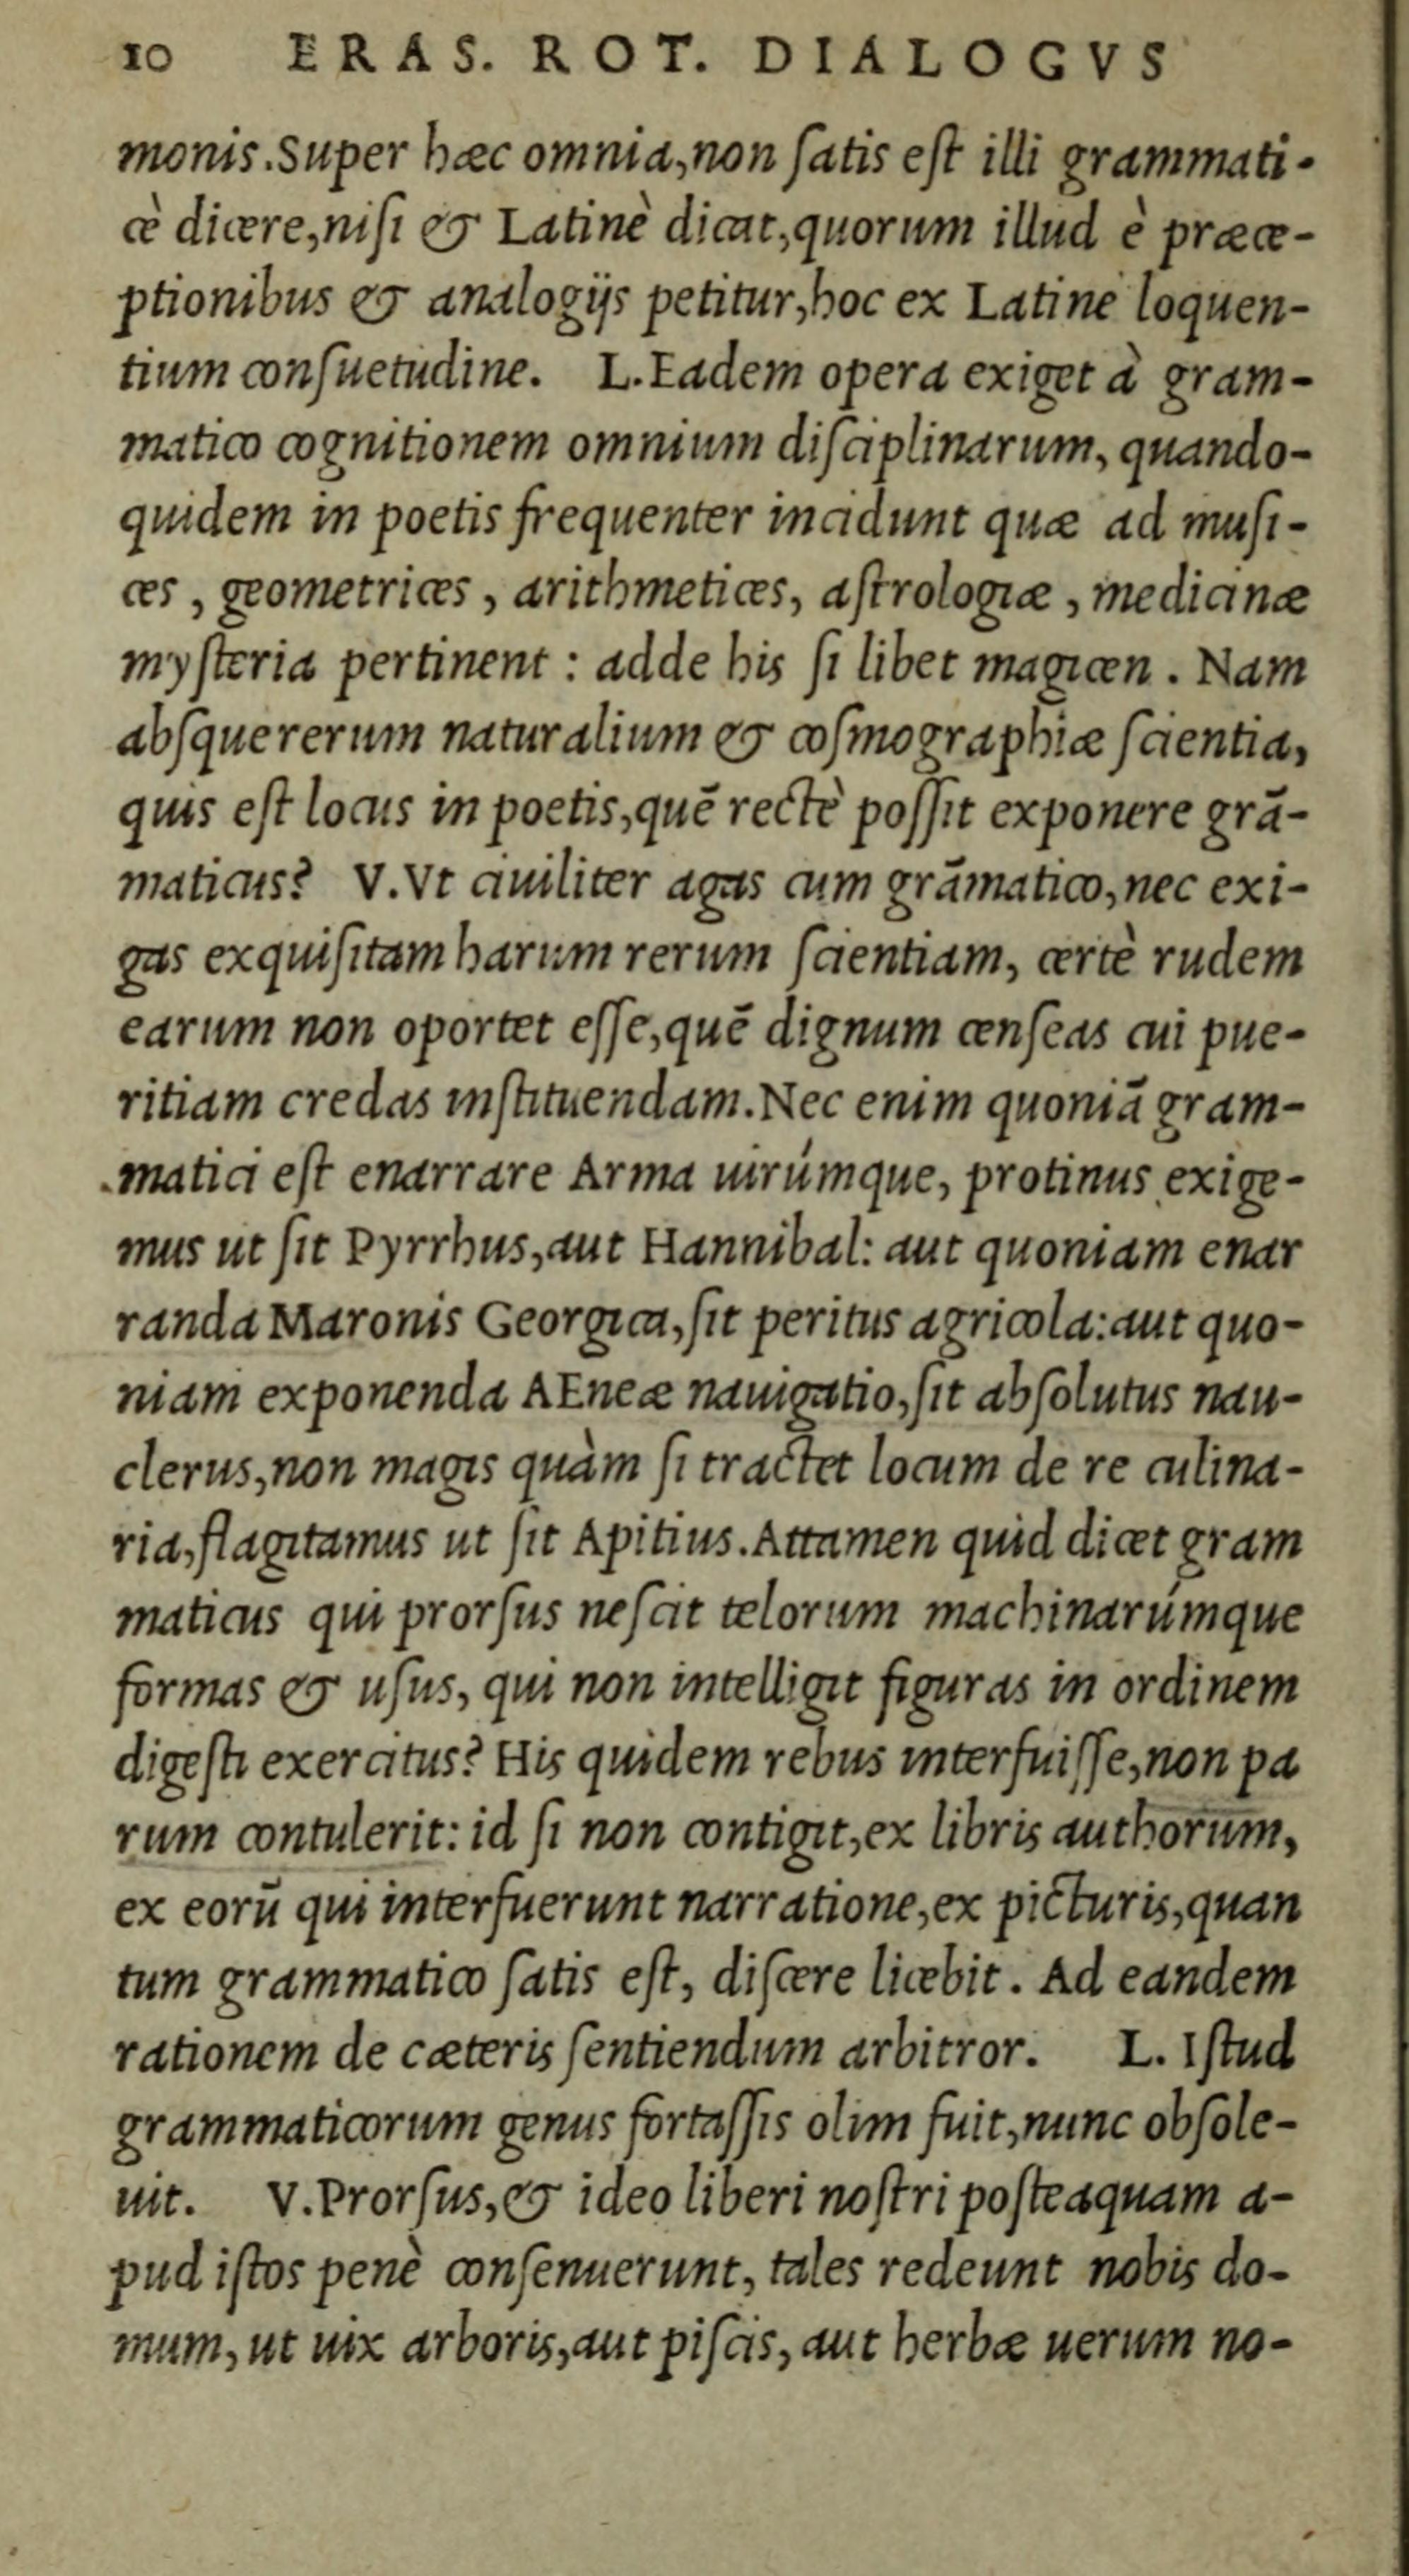 10 ERAS. ROT. DIALOGVS
monis.Super hæc omnia,non ſatis eſt illi grammati-
cè dicere,niſi & Latinè dicat,quorum illud è præce-
ptionibus & analogijs petitur,hoc ex Latinè loquen-
tium conſuetudine. L.Eadem opera exiget à gram-
matico cognitionem omnium diſciplinarum, quando-
quidem in poetis frequenter incidunt quæ ad muſi-
ces , geometrices , arithmetices, aſtrologiæ , medicinæ
myſteria pertinent : adde his ſi libet magicen . Nam
abſquererum naturalium & coſmographiæ ſcientia,
quis eſt locus in poetis,quē rectè poſſit exponere grā-
maticus? V.Vt ciuiliter agas cum grāmatico,nec exi-
gas exquiſitam harum rerum ſcientiam, certè rudem
earum non oportet eſſe,quē dignum cenſeas cui pue-
ritiam credas inſtituendam.Nec enim quoniā gram-
matici eſt enarrare Arma uirúmque, protinus exige-
mus ut ſit Pyrrhus,aut Hannibal: aut quoniam enar
randa Maronis Georgica,ſit peritus agricola:aut quo-
niam exponenda AEneæ nauigatio,ſit abſolutus nau-
clerus,non magis quàm ſi tractet locum de re culina-
ria,flagitamus ut ſit Apitius.Attamen quid dicet gram
maticus qui prorſus neſcit telorum machinarúmque
formas & uſus, qui non intelligit figuras in ordinem
digeſti exercitus? His quidem rebus interfuiſſe,non pa
rum contulerit: id ſi non contigit,ex libris authorum,
ex eorū qui interfuerunt narratione,ex picturis,quan
tum grammatico ſatis eſt, diſcere licebit . Ad eandem
rationem de cæteris ſentiendum arbitror. L. Iſtud
grammaticorum genus fortaſſis olim fuit,nunc obſole-
uit. V.Prorſus,& ideo liberi noſtri poſteaquam a-
pud iſtos penè conſenuerunt, tales redeunt nobis do-
mum, ut uix arboris,aut piſcis, aut herbæ uerum no-